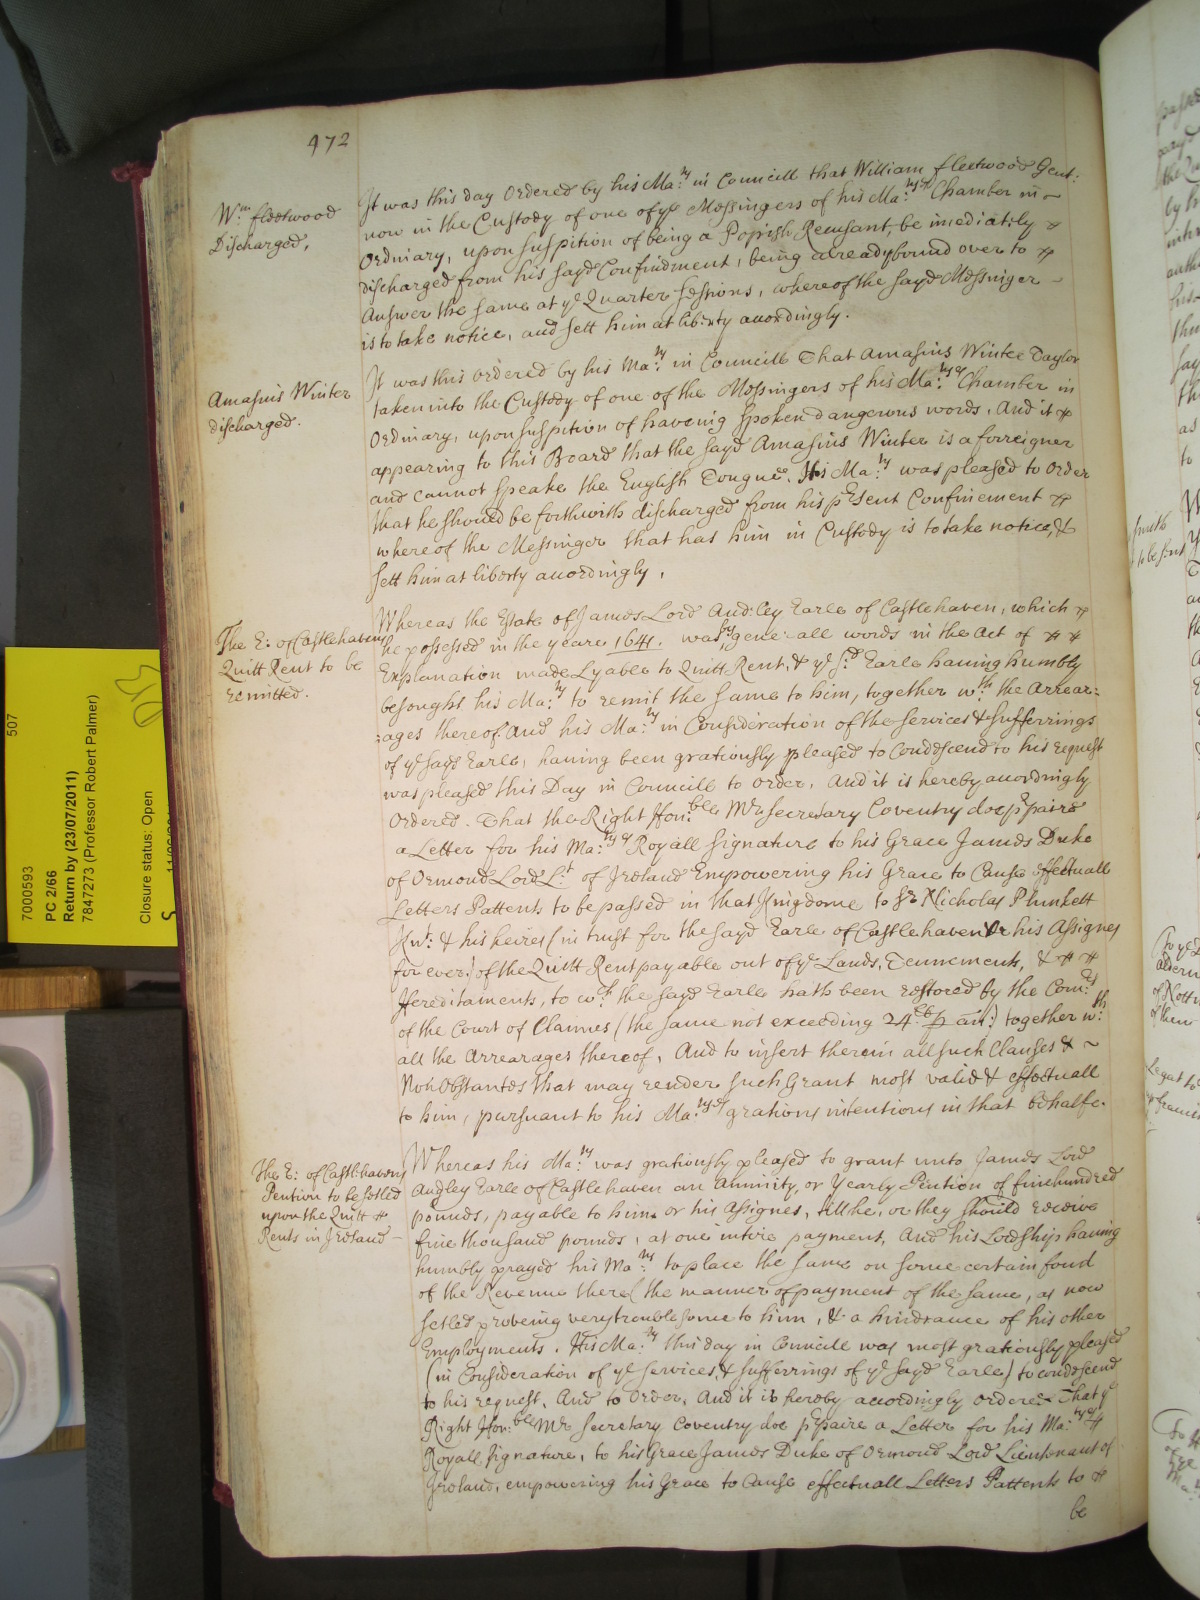 472
Wm. fleetwood
Discharged,
It was this day Ordered by his Ma:ty in Councill that William fleetwood Gent:
now in the Custody of one of ye Messingers of his Ma:tys Chamber in
Ordinary, upon suspition of being a Popish Recusant, be imediatily
discharged from his sayd Confindment, being already bound over to
Answer the same at ye Quarter Sessions, whereof the sayd Messinger
is to take notice, and sett him at liberty accordingly.
Amasius Winter
discharged.
It was this ordered by his Ma:ty in Councill That Amasius Winter Taylor
taken into the Custody of one of the Messingers of his Ma:tys Chamber in
Ordinary, upon suspition of haveing spoken dangerous words, And it
appearing to this Board that the sayd Amasius Winter is a forreigner
and cannot speake the English Tongue. His Ma:ty was pleased to order
that he should be forthwith discharged from his pesent Confinement
whereof the Messinger that has him in Custody is to take notice, &
sett him at liberty accordingly,
The E: of Castlehavens
Quitt Rent to be
remitted.
Whereas the Estate of James Lord Aud:ley Earle of Castlehaven, which
he possessed in the yeare 1641. was by gene:all words in the Act of
Explanation made Lyable to Quitt Rent, & ye sd. Earle having humbly
besought his Ma:ty to remit the same to him, together wth. the Arrear:
:ages thereof. And his Ma:ty in Consideration of the services & sufferrings
of ye sayd Earle, having been gratiously pleased to condescend to his request
was pleased this Day in Councill to order, And it is hereby accordingly
Ordered. That the Right Hon:ble Mr Secretary Coventry doe ppaire
a Letter for his Ma:tys Royall Signature to his Grace James Duke
of Ormond Lord Lt. of Ireland Empowering his Grace to Cause effectuall
Letters Pattents to be passed in that Kingdome to Sr Nicholas Plunkett
Knt: & his heires (in trust for the sayd Earle of Castlehaven Or his Assignes
for ever) of the Quitt Rent payable out of ye Lands, Tennements, &
Hereditaments, to wch. the sayd Earle hath been restored by the Com:rs
of the Court of Claimes (the same not exceeding 24:lb p an:) together w:th
all the Arrearages thereof, And to insert therein all such Clauses &
Non Obstantes that may render such Grant most valid & effectuall
to him, pursuant to his Ma:tys gratious intentions in that behalfe.
The E: of Castlehavens
Pention to be setled
upon the Quitt
Rents in Ireland
Whereas his Ma:ty was gratiously pleased to grant unto James Lord
Audley Earle of Castlehaven an Annuity, or Yearly Pention of five hundred
pounds, payable to him or his Assignes, till he, or they should receive
five thousand pounds, at one intire payment, And his Lordship having
humbly prayed his Ma:ty to place the same on some certain fond
of the Revenue there (the manner of payment of the same, as now
setled proveing very troublesome to him, & a hindrance of his other
Employments. His Ma:ty this day in Councill was most gratiously pleased
(in Consideration of ye services, & sufferrings of ye sayd Earle) to condescend
to his request, And to Order, And it is hereby accordingly ordered That ye
Right Hon:ble Mr Secretary Coventry doe ppaire a Letter for his Ma:tys
Royall Signature, to his Grace James Duke of Ormond Lord Lieutenant of
Ireland, empowering his Grace to Cause effectuall Letters Pattents to
be
7000593
507
PC 2/66
Return by (23/07/2011)
7847273 (Professor Robert Palmer)
Closure status: Open